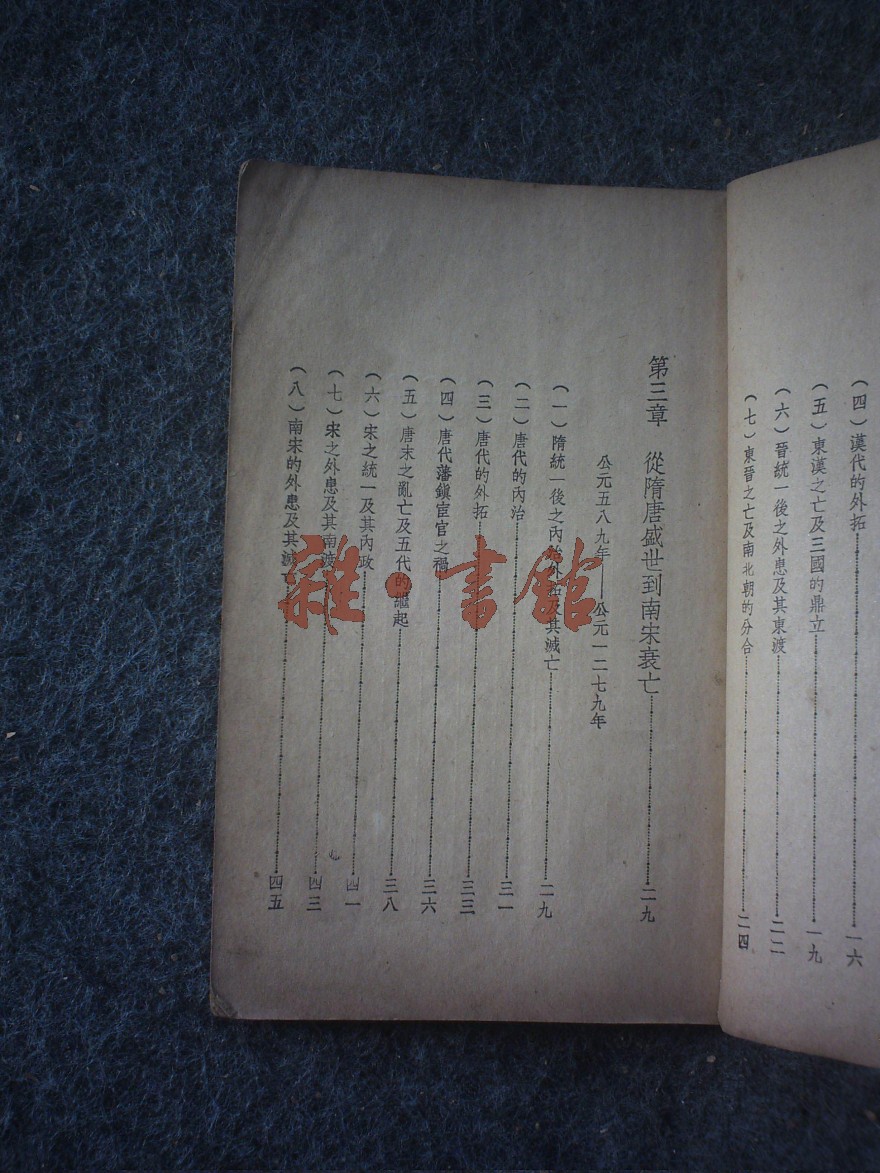 (四)漢代的外拓……一六
(五)東漢之亡及三國的鼎立……一九
(六)晉統一後之外患及其東渡……二二
(七)東晉之亡及南北朝的分合……二四
第三章 從隋唐盛世到南宋衰亡……二九
公元五八九年——公元一二七九年
(一)隋統一後之內治外拓及其滅亡……二九
(二)唐代的內治……三一
(三)唐代的外拓……三三
(四)唐代藩鎮宦官之禍……三六
(五)唐末之亂亡及五代的繼起……三八
(六)宋之統一及其內政……四一
(七)宋之外患及其南渡……四三
(八)南宋的外患及其滅亡……四五
雜·書館